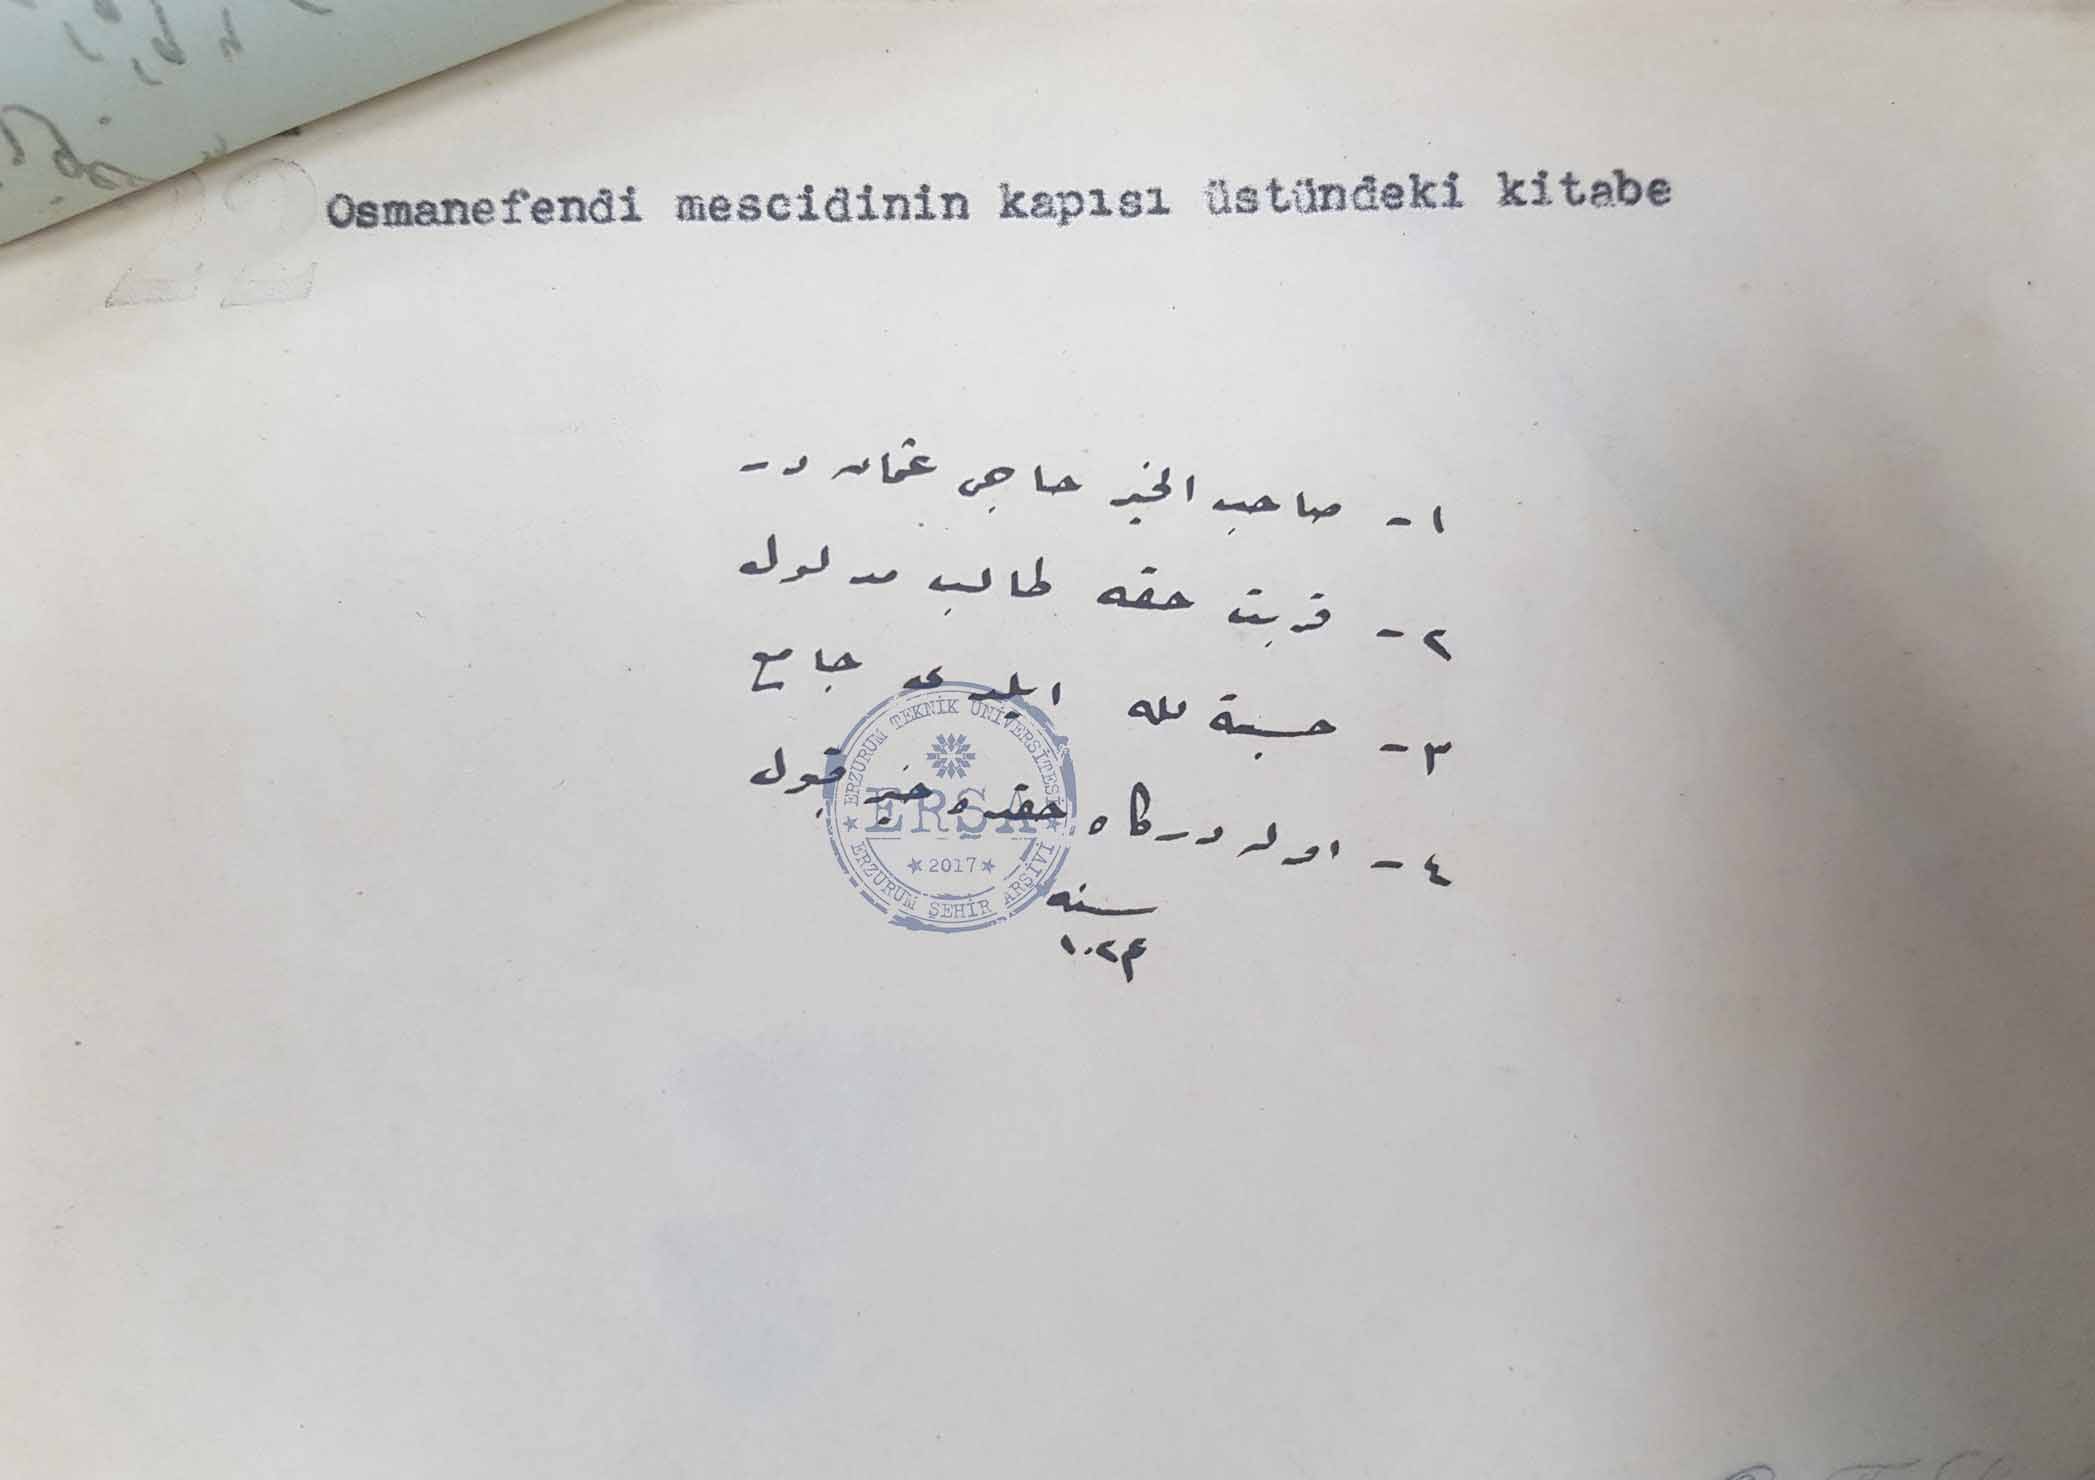 22
Osmanefendi mescidinin kapısı üstündeki kitabe
١- صاحب الخير حاجى عثمان در
٢- قربت حقه طالب مدلول
٣- حسبة لله ايلدى جامع
٤- اوله درگاه حقده خير قبول
سنه
١٠٢٤
ERZURUM TEKNİK ÜNİVERSİTESİ
ERŞA
2017
ERZURUM ŞEHİR ARŞİVİ